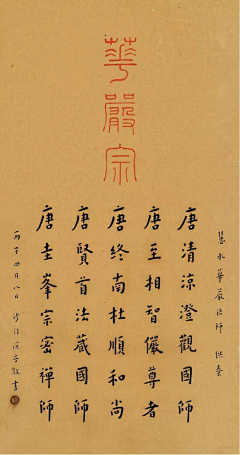 華嚴宗
慧水華嚴法師 供養
唐清涼澄觀國師
唐至相智儼尊者
唐終南杜順和尚
唐賢首法藏國師
唐圭峯宗密禪師
丙子四月八日
敬書